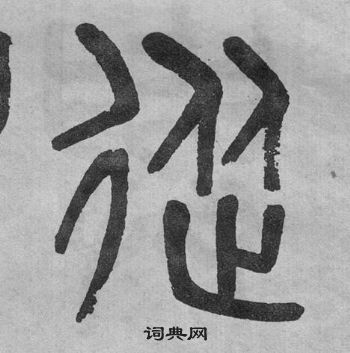 從
词典网